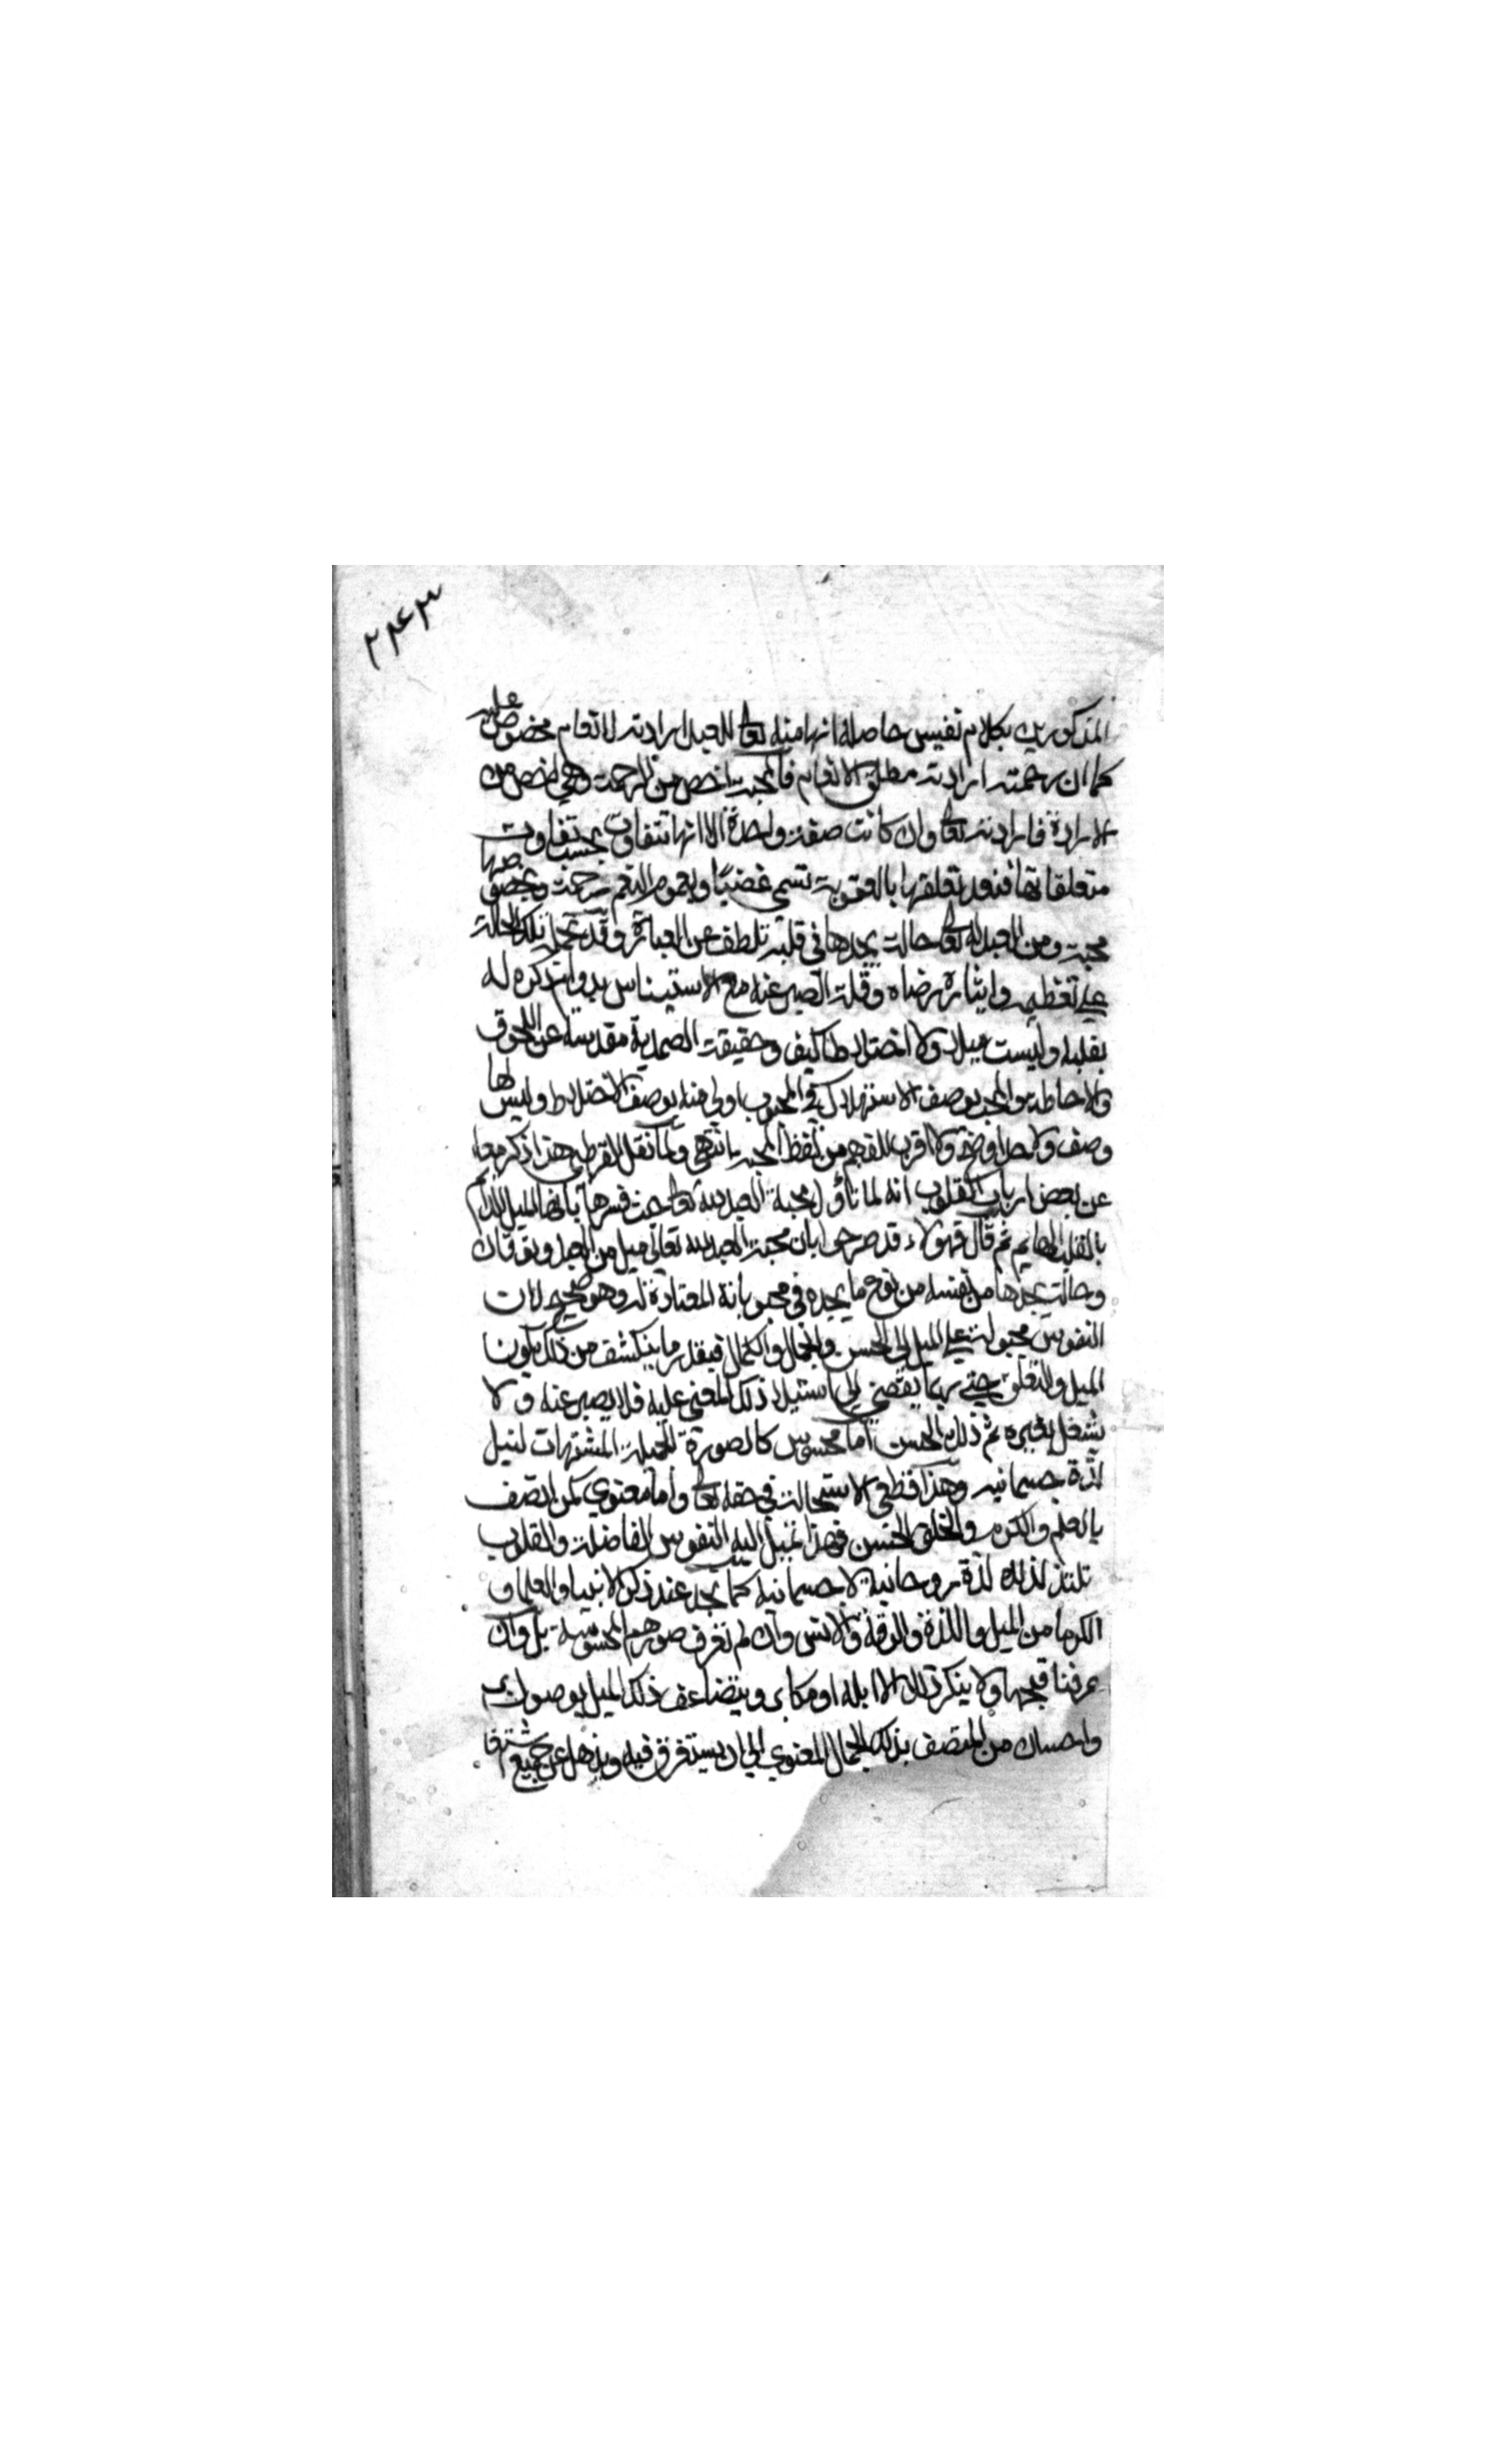 ٢٤٣
المذكورين بكلام نفيس حاصله انها منه تعالى للعبد ارادته لانعام مخصوص عليه
كما ان رحمته ارادته مطلق الانعام فالمحبة اخص من الرحمة وهي اخص من
الارادة فارادته تعالى وان كانت صفة واحدة الا انها تتفاوت بحسب تفاوت
متعلقاتها فعند تعلقها بالعقوبة تسمى غضبا وبعموم النعم رحمة وبخصوصها
محبة ومن العبد له تعالى حالة يجدها في قلبه تلطف عن العبارة وقد تحمله تلك الحالة
على تعظيمه وايثار رضاه وقلة الصبر عنه مع الاستيناس بدوام ذكره له
بقلبه وليست ميلا ولا اختلاطا كيف وحقيقة الصمدية مقدسة عن اللحوق
والاحاطة والمحب بوصف الاستهلاك في المحبوب اولى منه بوصف الاختلاط وليس لها
وصف ولا حد اوضح ولا اقرب للفهم من لفظ المحبة انتهى ولما نقل القرطبي هذا ذكر معه
عن بعض ارباب القلوب انه لما تاول محبة العبد لله تعالى حيث فسرها بانها الميل الدائم
بالقلب الهايم ثم قال فهؤلاء قد صرحوا بان محبة العبد لله تعالى ميل من العبد وتوقان
وحالة يجدها من نفسه من نوع ما يجده في محبوباته المعتادة له وهو صحيح لان
النفوس مجبولة على الميل الى الحسن والجمال والكمال فبقدر ما ينكشف من ذلك يكون
الميل والتعلق حتى ربما يفضي الى استيلا ذلك المعنى عليه فلا يصبر عنه ولا
يشغل بغيره ثم ذلك الحسن اما محسوس كالصورة الجميلة المشتهات لنيل
لذة جسمانيه وهذا قطعي الاستحالة في حقه تعالى واما معنوي كمن اتصف
بالعلم والكرم والخلق الحسن فهذا تميل اليه النفوس الفاضلة والقلوب
تلتذ لذلك لذة روحانية لا جسمانيه كما تجد عند ذكر الانبيا والعلما و
الكرما من الميل واللذة والرقة والانس وان لم تعرف صورهم المحسوسة بل وان
عرفنا قبحها ولا ينكر ذلك الا ابله او مكابر ويتضاعف ذلك الميل بوصول بر
واحسان من المتصف بذلك الجمال المعنوي الى ان يستغرق فيه ويذهل عن جميع